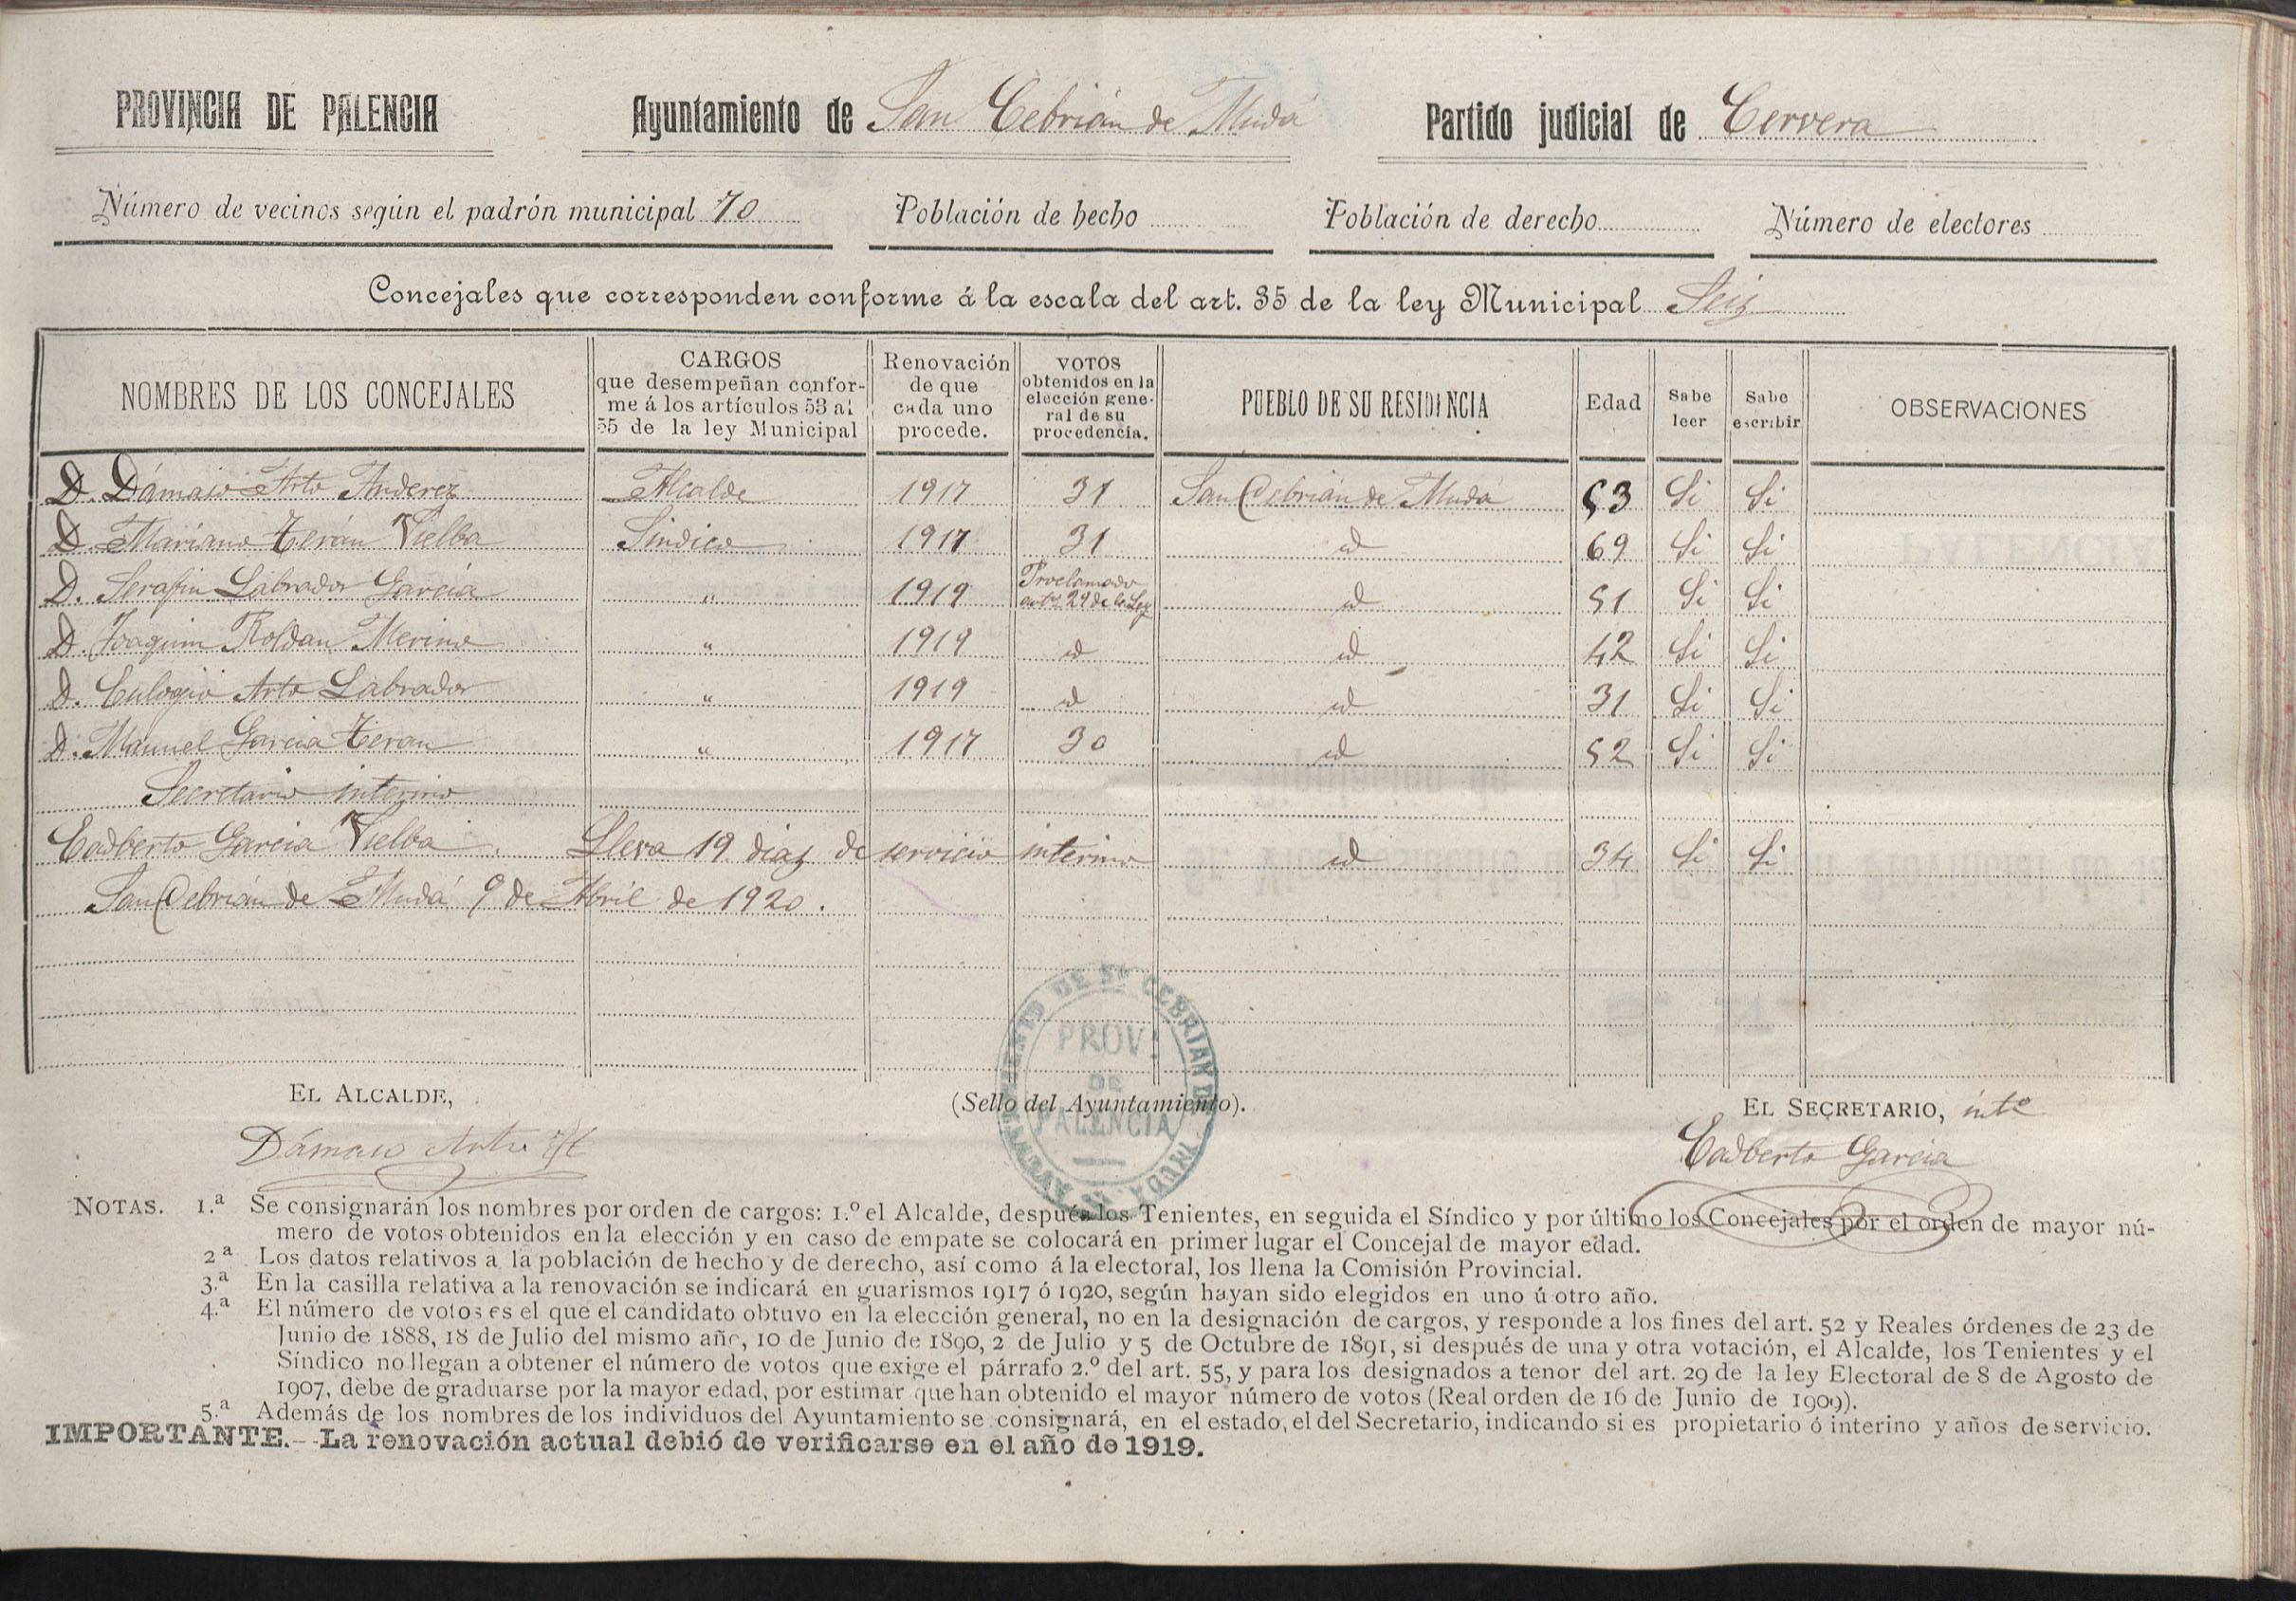 PROVINCIA DE PALENCIA Ayuntamiento de San Cebrián de Mudá Partido judicial de Cervera
Número de vecinos según el padrón municipal 70 Población de hecho Población de derecho Número de electores
Concejales que corresponden conforme á la escala del art. 35 de la ley Municipal Seis
NOMBRES DE LOS CONCEJALES
CARGOS
que desempeñan confor-
me á los artículos 53 al
55 de la ley Municipal
Renovación
de que
cada uno
procede.
VOTOS
obtenidos en la
elección gene-
ral de su
procedencia.
PUEBLO DE SU RESIDENCIA
Edad
Sabe
leer
Sabe
escribir
OBSERVACIONES
D. Dámaso Arto Anderez Alcalde 1917 31 San Cebrián de Mudá 53 Si Si
D. Mariano Terán Vielba Sindico 1917 31 id 69 Si Si
D. Serafin Labrador García " 1919 Proclamado artº 29 de la Ley id 51 Si Si
D. Joaquin Roldan Merino " 1919 id id 42 Si Si
D. Eulogio Arto Labrador " 1919 id id 31 Si Si
D. Manuel Garcia Teran " 1917 30 id 52 Si Si
Secretario interino
Eadberto Garcia Vielba. Lleva 19 dias de servicio interino id 34 Si Si
San Cebrián de Mudá 9 de Abril de 1920.
EL ALCALDE,
Dámaso Arto
(Sello del Ayuntamiento).
AYUNTAMIENTO DE Sn CEBRIAN DE MUDA
PROV.
DE
PALENCIA
EL SECRETARIO, intº
Eadberto Garcia
NOTAS. 1.ª Se consignarán los nombres por orden de cargos: 1.º el Alcalde, después los Tenientes, en seguida el Síndico y por último los Concejales por el orden de mayor nú-
mero de votos obtenidos en la elección y en caso de empate se colocará en primer lugar el Concejal de mayor edad.
2ª Los datos relativos a la población de hecho y de derecho, así como á la electoral, los llena la Comisión Provincial.
3.ª En la casilla relativa a la renovación se indicará en guarismos 1917 ó 1920, según hayan sido elegidos en uno ú otro año.
4.ª El número de votos es el que el candidato obtuvo en la elección general, no en la designación de cargos, y responde a los fines del art. 52 y Reales órdenes de 23 de
Junio de 1888, 18 de Julio del mismo año, 10 de Junio de 1890, 2 de Julio y 5 de Octubre de 1891, si después de una y otra votación, el Alcalde, los Tenientes y el
Síndico no llegan a obtener el número de votos que exige el párrafo 2.º del art. 55, y para los designados a tenor del art. 29 de la ley Electoral de 8 de Agosto de
1907, debe de graduarse por la mayor edad, por estimar que han obtenido el mayor número de votos (Real orden de 16 de Junio de 1909).
5.ª Además de los nombres de los individuos del Ayuntamiento se consignará, en el estado, el del Secretario, indicando si es propietario ó interino y años de servicio.
IMPORTANTE.--La renovación actual debió de verificarse en el año de 1919.